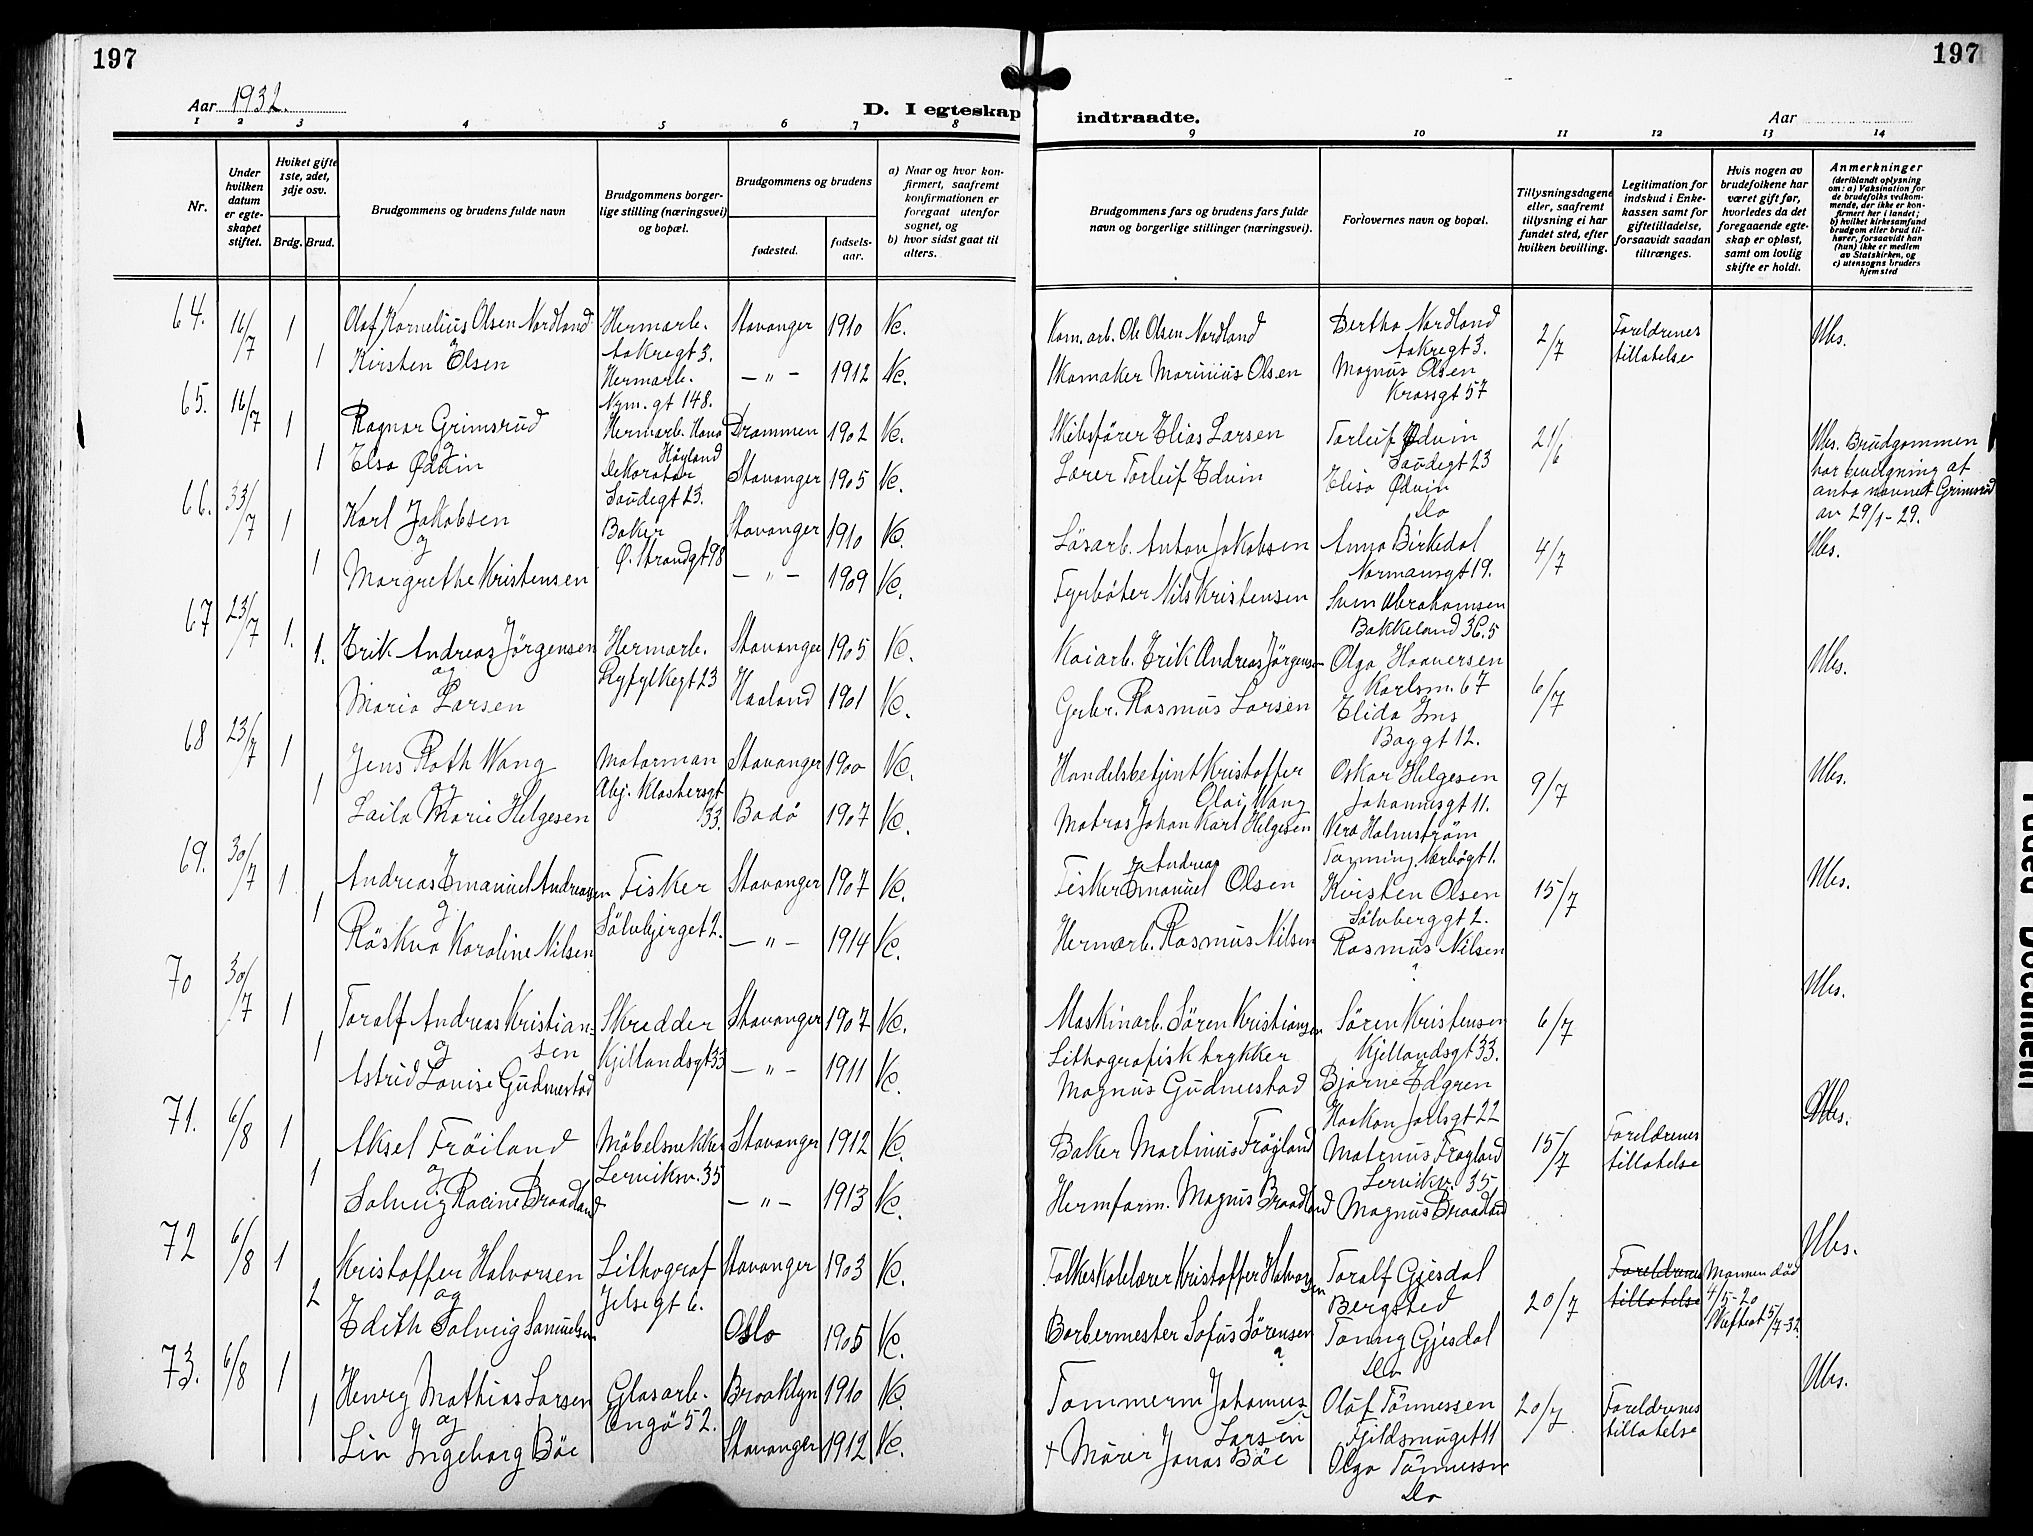 197
197
Aar 1932.
D. I egteskap indtraadte.
Aar
1 2 3 4 5 6 7 8 9 10 11 12 13 14
Nr.
Under hvilken datum er egteskapet stiftet.
Hviket gifte 1ste, 2det, 3dje osv.
Brdg. Brud.
Brudgommens og brudens fulde navn
Brudgommens borgerlige stilling (næringsvei) og bopæl.
Brudgommens og brudens
fødested.
fødselsaar.
a) Naar og hvor konfirmert, saafremt konfirmationen er foregaat utenfor sognet, og
b) hvor sidst gaat til alters.
Brudgommens fars og brudens fars fulde navn og borgerlige stillinger (næringsvei).
Forlovernes navn og bopæl.
Tillysningsdagene eller, saafremt tillysning ei har fundet sted, efter hvilken bevilling.
Legitimation for indskud i Enkekassen samt for giftetilladelse, forsaavidt saadan tiltrænges.
Hvis nogen av brudefolkene har været gift før, hvorledes da det foregaaende egteskap er opløst, samt om lovlig skifte er holdt.
Anmerkninger (deriblandt oplysning om: a) Vaksination for de brudefolks vedkommende, der ikke er konfirmert her i landet; b) hvilket kirkesamfund brudgom eller brud tilhører, forsaavidt han (hun) ikke er medlem av Statskirken, og c) utensogns bruders hjemsted
64. 16/7 1 Olaf Kornelius Olsen Nordland Hermarb. Stavanger 1910
og Aakregt 3.
1 Kirsten Olsen Hermarb. Nym. gt 148. — " — 1912
Kom. arb. Ole Olsen Nordland Bertha Nordland Aakregt 3. 2/7 Foreldrenes tillatelse
Skomaker Marinius Olsen Magnus Olsen Krossgt 57
65. 16/7 1 Ragnar Grimsrud Hermarb. Hana Høyland Drammen 1902
og
1 Elsa Ødvin Dekoratør Saudegt 23. Stavanger 1905
Skibsfører Elias Larsen Torleif Ødvin Saudegt 23 21/6 Brudgommen har bevilgning at anta navnet Grimsrud av 29/1-29.
Lærer Torleif Edvin Elisa Ødvin Do
66. 33/7 1 Karl Jakobsen Baker Stavanger 1910
og Ø. Strandgt 98
1 Margrethe Kristensen — " — 1909
Løsarb. Anton Jakobsen Anna Birkedal Normansgt 19. 4/7
Fyrbøter Nils Kristensen Sven Abrahamsen Bakkeland 36.5
67 23/7 1. 1. Erik Andreas Jörgensen Hermarb. Stavanger 1905
og Ryfylkegt 23
Maria Larsen Haaland 1901
Kaiarb. Erik Andreas Jörgensen Olga Haaversen Karlsm. 67 6/7
Grbr. Rasmus Larsen Elida Ims Baggt 12.
68 23/7 1 Jens Roth Wang Motorman Stavanger 1900
og Abj. Klostersgt 33.
1 Laila Marie Helgesen Bodö 1907
Handelsbetjent Kristoffer Olai Wang Oskar Helgesen Johannesgt 11. 9/7
Matros Johan Karl Helgesen Vera Holmström
69. 30/7 1 Andreas Emanuel Andreassen Fisker Stavanger 1907
og Sölvbjerget 2.
1 Röskva Karoline Nilsen — " — 1914
Fisker Andreas Emanuel Olsen Kirsten Olsen Sölvberggt 2. 15/7
Hermarb. Rasmus Nilsen Rasmus Nilsen
70 30/7 1 Toralf Andreas Kristiansen Skrædder Stavanger 1907
og Kjellandsgt 33
1 Astrid Louise Gudmestad — " — 1911
Maskinarb. Sören Kristiansen Sören Kristensen Kjellandsgt 33. 6/7
Lithografisk trykker Magnus Gudmestad Bjarne Edgren Haakon Jarlsgt 22
71. 6/8 1 Aksel Fröiland Möbelsnekker Stavanger 1912
og Lerviksv. 35
1 Solveig Racine Braadland — " — 1913
Baker Martinius Fröyland 15/7 Foreldrenes tillatelse
Lervikv. 35
Hermfarm. Magnus Braadland Magnus Braadland
72 6/8 1 Kristoffer Halvorsen Lithograf Stavanger 1903
og Jelsegt 6.
2 Edith Solveig Samuelsen Oslo 1905
Folkeskolelærer Kristoffer Halvorsen Toralf Gjesdal Bergsted 20/7 Foreldrenes tillatelse Mannen död 4/5-20 Skifteat 15/7-32.
Barbermester Sofus Sörensen Tonny Gjesdal Do
73. 6/8 1 Henry Mathias Larsen Glasarb. Brooklyn 1910
og Engö 52.
1 Liv Ingeborg Böe Stavanger 1912
Tömmerm Johannes Larsen Olaf Tönnessen Fjeldsmuget 11 20/7 Foreldrenes tillatelse
† Mürer Jonas Böe Olga Tönnessen Do